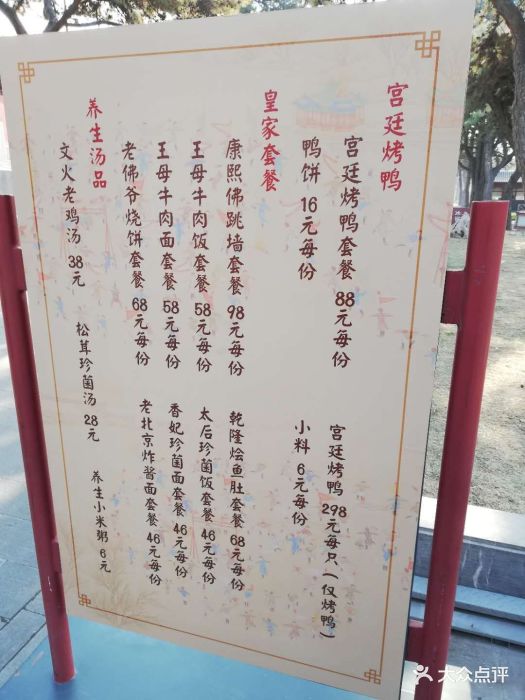 宫廷烤鸭
宫廷烤鸭套餐 88元每份
宫廷烤鸭 298元每只（仅烤鸭）
鸭饼 16元每份
小料 6元每份
皇家套餐
康熙佛跳墙套餐 98元每份
乾隆烩鱼肚套餐 68元每份
王母牛肉饭套餐 58元每份
太后珍菌饭套餐 46元每份
王母牛肉面套餐 58元每份
香妃珍菌面套餐 46元每份
老佛爷烧饼套餐 68元每份
老北京炸酱面套餐 46元每份
养生汤品
文火老鸡汤 38元
松茸珍菌汤 28元
养生小米粥 6元
大众点评